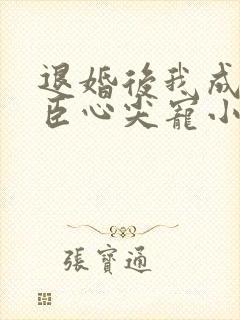 退婚後我成
臣心尖寵小
張寶通